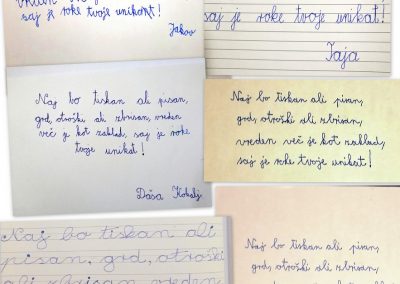 saj je roke tvoje unikat!
Jakov
saj je roke tvoje unikat!
Jaja
Naj bo tiskan ali pisan,
grd, otroški ali zbrisan, vreden
več je kot zaklad, saj je roke
tvoje unikat!
Daša Kokalj
Naj bo tiskan ali pisan,
grd, otroški ali zbrisan,
vreden več je kot zaklad,
saj je roke tvoje unikat!
Naj bo tiskan ali
pisan, grd, otroški
ali zbrisan, vreden
Naj bo tiskan ali pisan,
grd, otroški ali zbrisan,